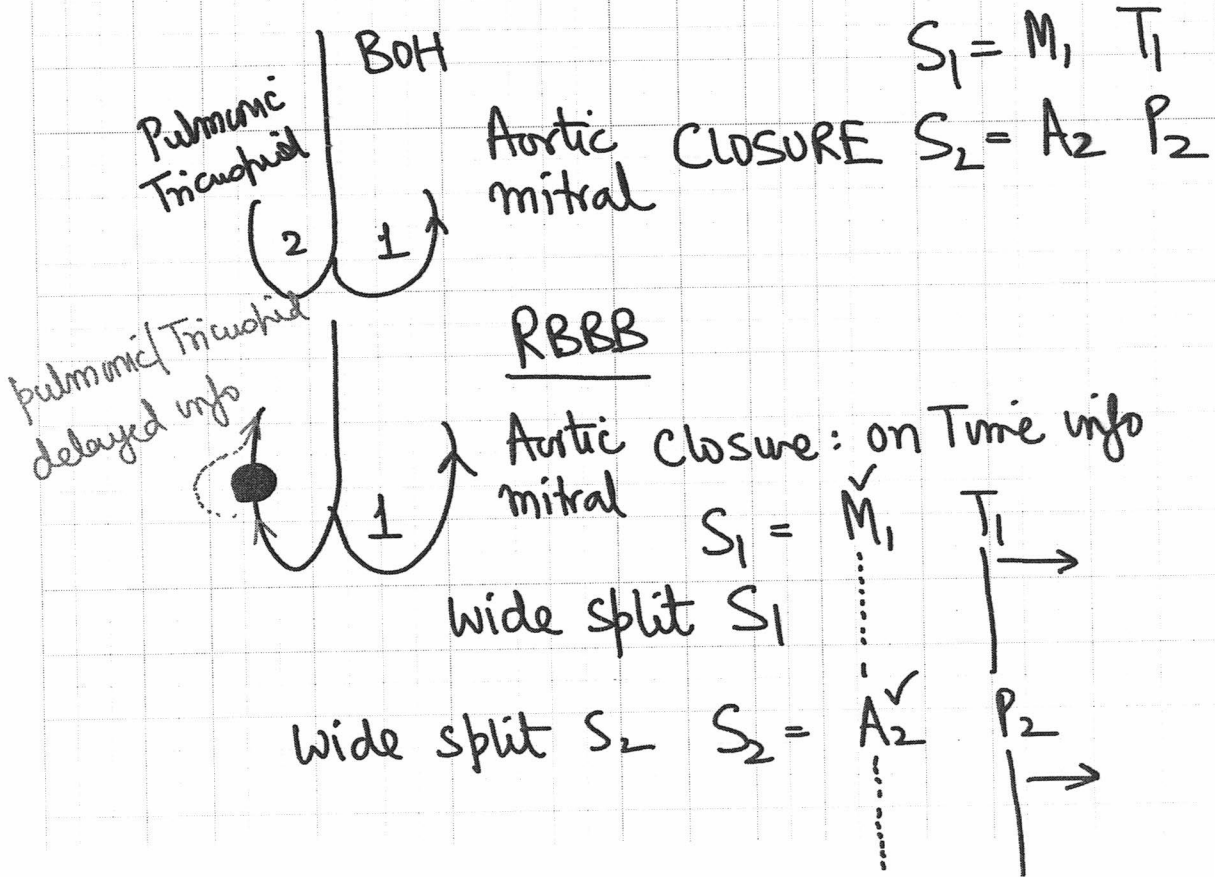 BOH
S₁ = M₁ T₁
Pulmonic
Tricuspid
Aortic CLOSURE S₂ = A₂ P₂
mitral
2 1
RBBB
pulmonic/Tricuspid
delayed info
Aortic closure: on Time info
mitral
1
S₁ = M₁ T₁
wide split S₁
wide split S₂ S₂ = A₂ P₂